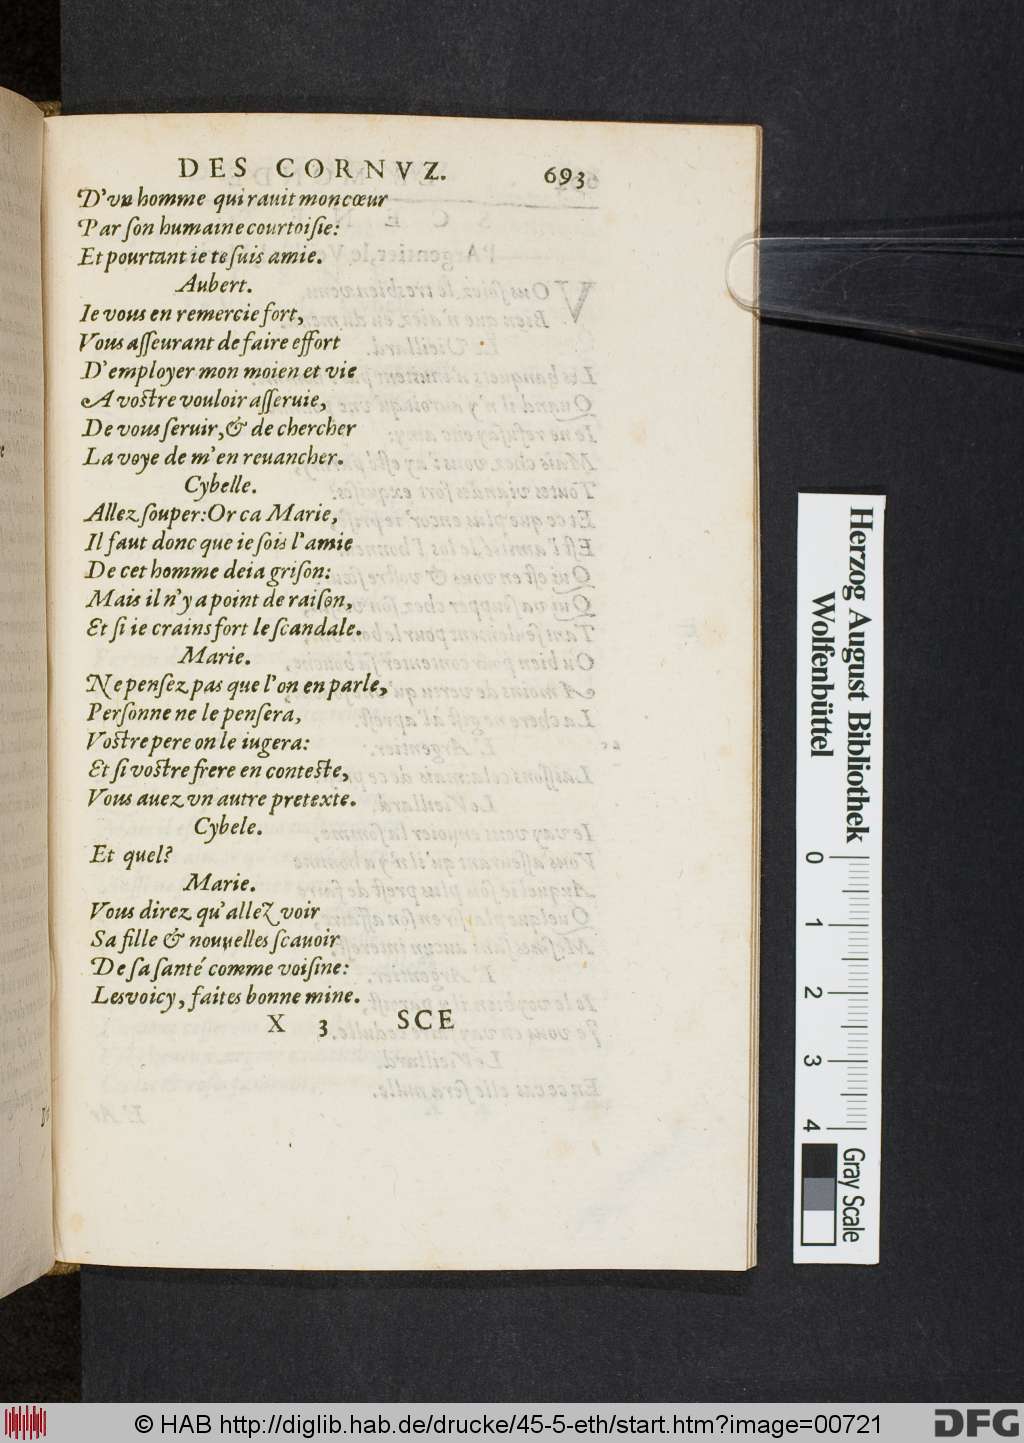 DES CORNVZ. 693
D'vn homme qui rauit mon cœur
Par ſon humaine courtoiſie:
Et pourtant ie te ſuis amie.
Aubert.
Ie vous en remercie fort,
Vous aſſeurant de faire effort
D'employer mon moien et vie
A voſtre vouloir aſſeruie,
De vous ſeruir, & de chercher
La voye de m'en reuancher.
Cybelle.
Allez ſouper: Or ca Marie,
Il faut donc que ie ſois l'amie
De cet homme deia griſon:
Mais il n'y a point de raiſon,
Et ſi ie crains fort le ſcandale.
Marie.
Ne penſez pas que l'on en parle,
Perſonne ne le penſera,
Voſtre pere on le iugera:
Et ſi voſtre frere en conteſte,
Vous auez vn autre pretexte.
Cybele.
Et quel?
Marie.
Vous direz qu'allez voir
Sa fille & nouuelles ſcauoir
De ſa ſanté comme voiſine:
Les voicy, faites bonne mine.
X 3 SCE
Herzog August Bibliothek
Wolfenbüttel
0 1 2 3 4
Gray Scale
© HAB http://diglib.hab.de/drucke/45-5-eth/start.htm?image=00721
DFG